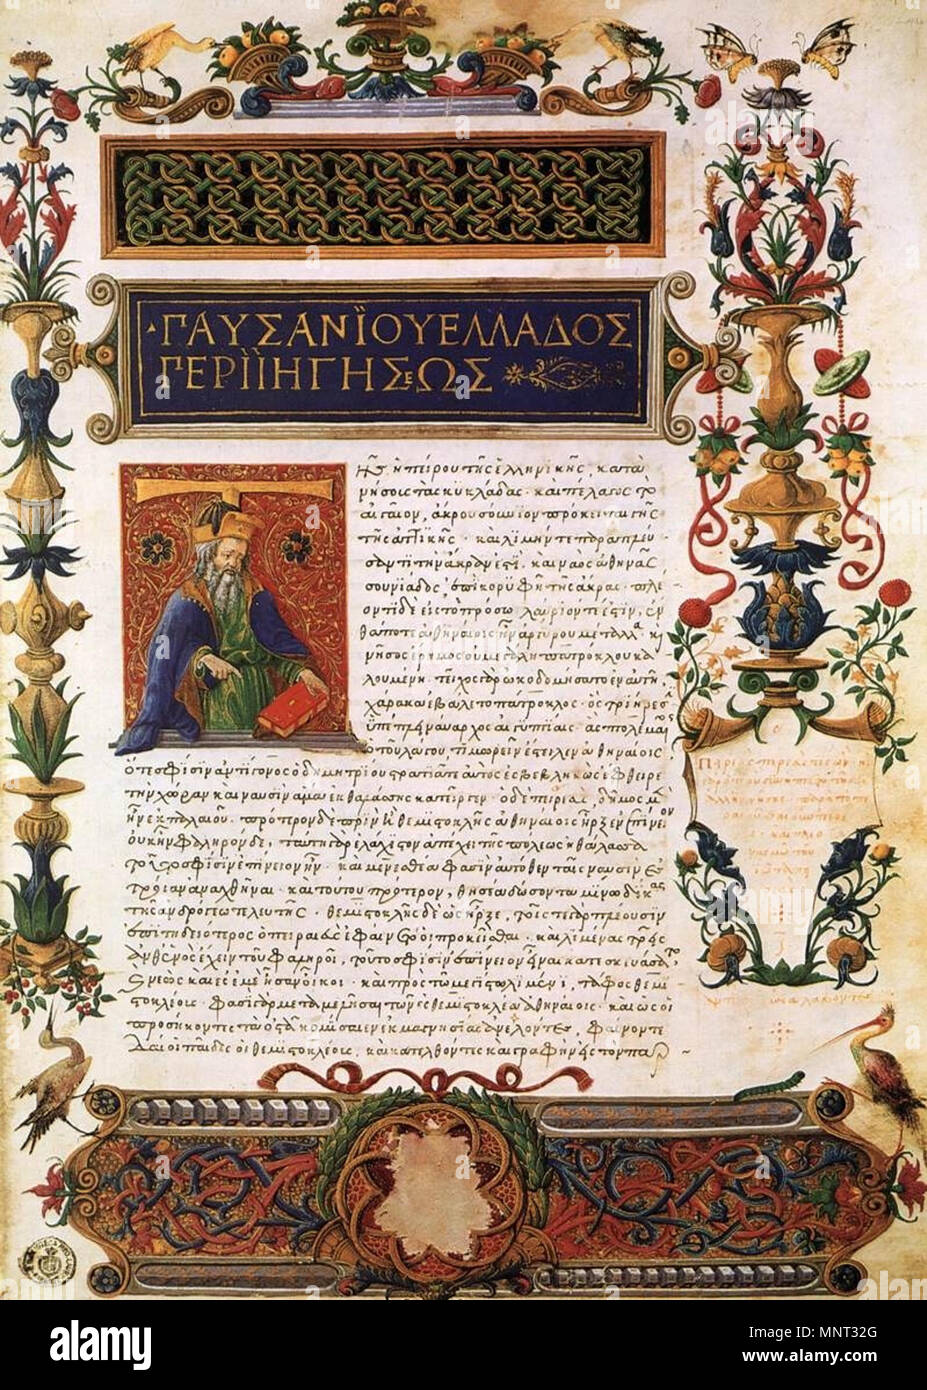 ΠΑΥΣΑΝΙΟΥ ΕΛΛΑΔΟΣ
ΠΕΡΙΗΓΗΣΕΩΣ
Τῆς ἠπείρου τῆς ἑλληνικῆς, κατὰ
νήσους τὰς κυκλάδας · καὶ πέλαγος τὸ
αἰγαῖον, ἄκρου σούνιον πρόκειται γῆς
τῆς ἀττικῆς · καὶ λιμήν τε παραπλεύ-
σαντι τὴν ἄκραν ἐστὶ · καὶ ναὸς ἀθηνᾶς
σουνιάδος, ἐπὶ κορυφῇ τῆς ἄκρας · πλέ-
οντι δὲ εἰς τὸ πρόσω λαύριόν τέ ἐστιν, ἔν
θα ποτὲ ἀθηναίοις ἦν ἀργύρου μέταλλα · καὶ
νῆσος ἔρημος οὐ μεγάλη πατρόκλου κα
λουμένη · τεῖχος γὰρ ᾠκοδομήσατο ἐν αὐτῇ
χάρακα ἐβάλετο πάτροκλος · ὃς τριήρεσιν
ὑπέπλει ναύαρχος αἰγυπτίαις · ἃς πτολεμαῖος
ὁ τοῦ λάγου τιμωρεῖν ἔστειλεν ἀθηναίοις
ὅτε σφίσιν ἀντίγονος ὁ δημητρίου στρατιᾷ τε αὐτὸς ἐσβεβληκὼς ἔφθειρε
τὴν χώραν καὶ ναυσὶν ἅμα ἐκ θαλάσσης κατεῖργεν · ὁ δὲ πειραιεὺς, δῆμος μὲν
ἦν ἐκ παλαιοῦ · πρότερον δὲ πρὶν ἢ θεμιστοκλῆς ἀθηναίοις ἦρξεν ἐπίνειον
οὐκ ἦν φαληρὸν δὲ, ταύτῃ γὰρ ἐλάχιστον ἀπέχει τῆς πόλεως ἡ θάλασσα
τοῦτο σφίσιν ἐπίνειον ἦν · καὶ μενεσθέα φασὶν αὐτόθεν ταῖς ναυσὶν ἐς
τροίαν ἀναχθῆναι · καὶ τούτου πρότερον, θησέα δώσοντα μίνῳ δίκας
τῆς ἀνδρόγεω τελευτῆς · θεμιστοκλῆς δὲ ὡς ἦρξε, τοῖς τε γὰρ πλέουσιν
ἐπιτηδειότερος ὁ πειραιεὺς ἐφαίνετό οἱ προκεῖσθαι · καὶ λιμένας τρεῖς
ἀνθ' ἑνὸς ἔχειν τοῦ φαληροῖ, τοῦτο σφίσιν ἐπίνειον εἶναι κατεσκευάσατο
νεὼς καὶ ἐς ἐμὲ ἦσαν οἶκοι · καὶ πρὸς τῷ μεγίστῳ λιμένι, τάφος θεμι-
στοκλέους · φασὶ γὰρ μεταμελῆσαι τῶν ἐς θεμιστοκλέα ἀθηναίοις · καὶ ὡς οἱ
προσήκοντες τὰ ὀστᾶ κομίσαιεν ἐκ μαγνησίας ἀνελόντες, φαίνονται
δὲ οἱ παῖδες οἱ θεμιστοκλέους, καὶ κατελθόντες καὶ γραφὴν ἐς τὸν πα
alamy
Image ID: MNT32G
www.alamy.com